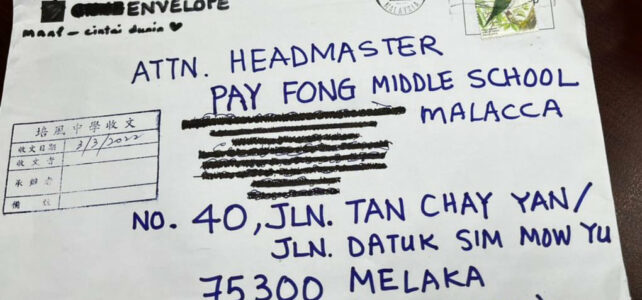 ENVELOPE
maaf - cintai dunia ♥
MALAYSIA
ATTN. HEADMASTER
PAY FONG MIDDLE SCHOOL
MALACCA
培風中學收文
收文日期 3/3/2022
收文者
承辦者
欄位
NO. 40, JLN. TAN CHAY YAN/
JLN. DATUK SIM MOW YU
75300 MELAKA